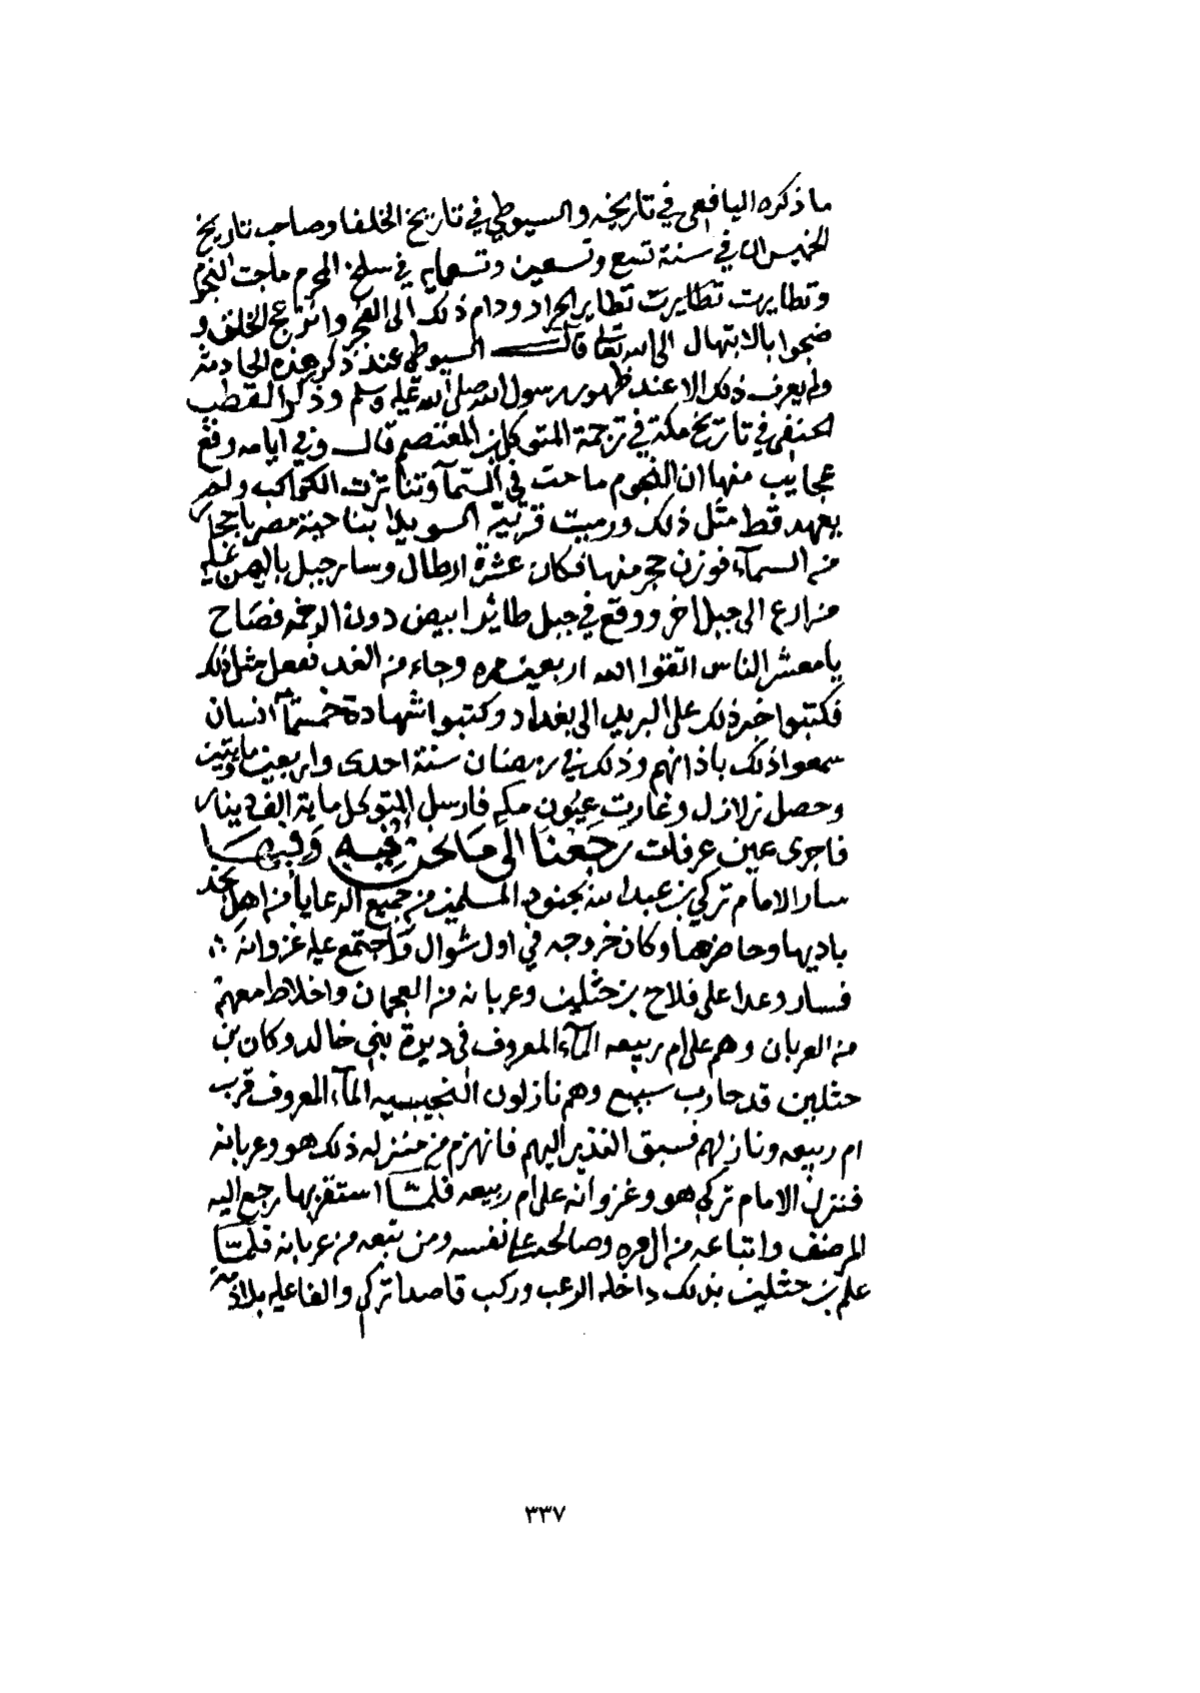 ما ذكره اليافعي في تاريخه والسيوطي في تاريخ الخلفا وصاحب تاريخ
الخميس ان في سنة تسع وتسعين وتسعماية في سلخ المحرم ماجت النجوم
وتطايرت تطايرت تطاير الجراد ودام ذلك الى الفجر وانزعج الخلق و
ضجوا بالابتهال الى الله تعالى قال السيوطي عند ذكر هذه الحادثة
ولم يعرف ذلك الا عند ظهور رسول الله صلى الله عليه وسلم وذكر القطب
الحنفي في تاريخ مكة في ترجمة المتوكل بن المعتصم قال وفي ايامه وقع
عجايب منها ان النجوم ماجت في السمآ وتناثرت الكواكب ولم
يعهد قط مثل ذلك ورميت قرية السويدا بناحية مصر باحجار
من السمآء فوزن حجر منها فكان عشرة ارطال وسار جبل باليمن عليه
مزارع الى جبل اخر ووقع في جبل طائر ابيض دون الرخمه فصاح
يا معشر الناس اتقوا الله اربعين مره وجاء من الغد ففعل مثل ذلك
فكتبوا خبر ذلك على البريد الى بغداد وكتبوا شهادة خمسمآية انسان
سمعوا ذلك باذانهم وذلك في رمضان سنة احدى واربعين ومايتين
وحصل زلازل وغارت عيون مكه فارسل المتوكل ماية الف دينار
فاجرى عين عرفات رجعنا الى ما نحن فيه وفيها
سار الامام تركي بن عبدالله بجنود المسلمين من جميع الرعايا من اهل نجد
باديها وحاضرها وكان خروجه في اول شوال فاجتمع عليه غزوانه
فسار وعدا على فلاح بن حثلين وعربانه من العجمان واخلاط معهم
من العربان وهم على ام ربيعه المآء المعروف في ديرة بني خالد وكان بن
حثلين قد حارب سبيع وهم نازلون النجيبيه المآء المعروف قرب
ام ربيعه ونازلهم فسبق النذير اليهم فانهزم من منزله ذلك هو وعربانه
فنزل الامام تركي هو وغزوانه على ام ربيعه فلمّا استقر بها رجع اليه
المرضف واتباعه من ال مره وصالحه على نفسه ومن تبعه من عربانه فلمّا
علم بن حثلين بذلك داخله الرعب وركب قاصدا تركي والفا عليه بلا ذمه
٣٣٧